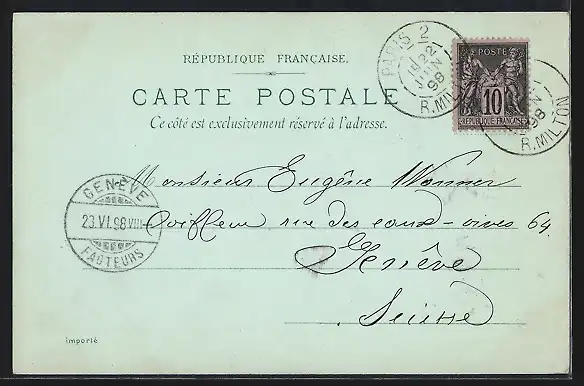 RÉPUBLIQUE FRANÇAISE.
CARTE POSTALE
Ce côté est exclusivement réservé à l'adresse.
PARIS 2
22
JUIN
98
R. MILTON
POSTE
10
RÉPUBLIQUE FRANÇAISE
98
R. MILTON
Monsieur Eugène Wanner
Coiffeur rue des eaux-vives 64
Genève
Suisse
GENÈVE
23.VI.98 VIII
FACTEURS
importé